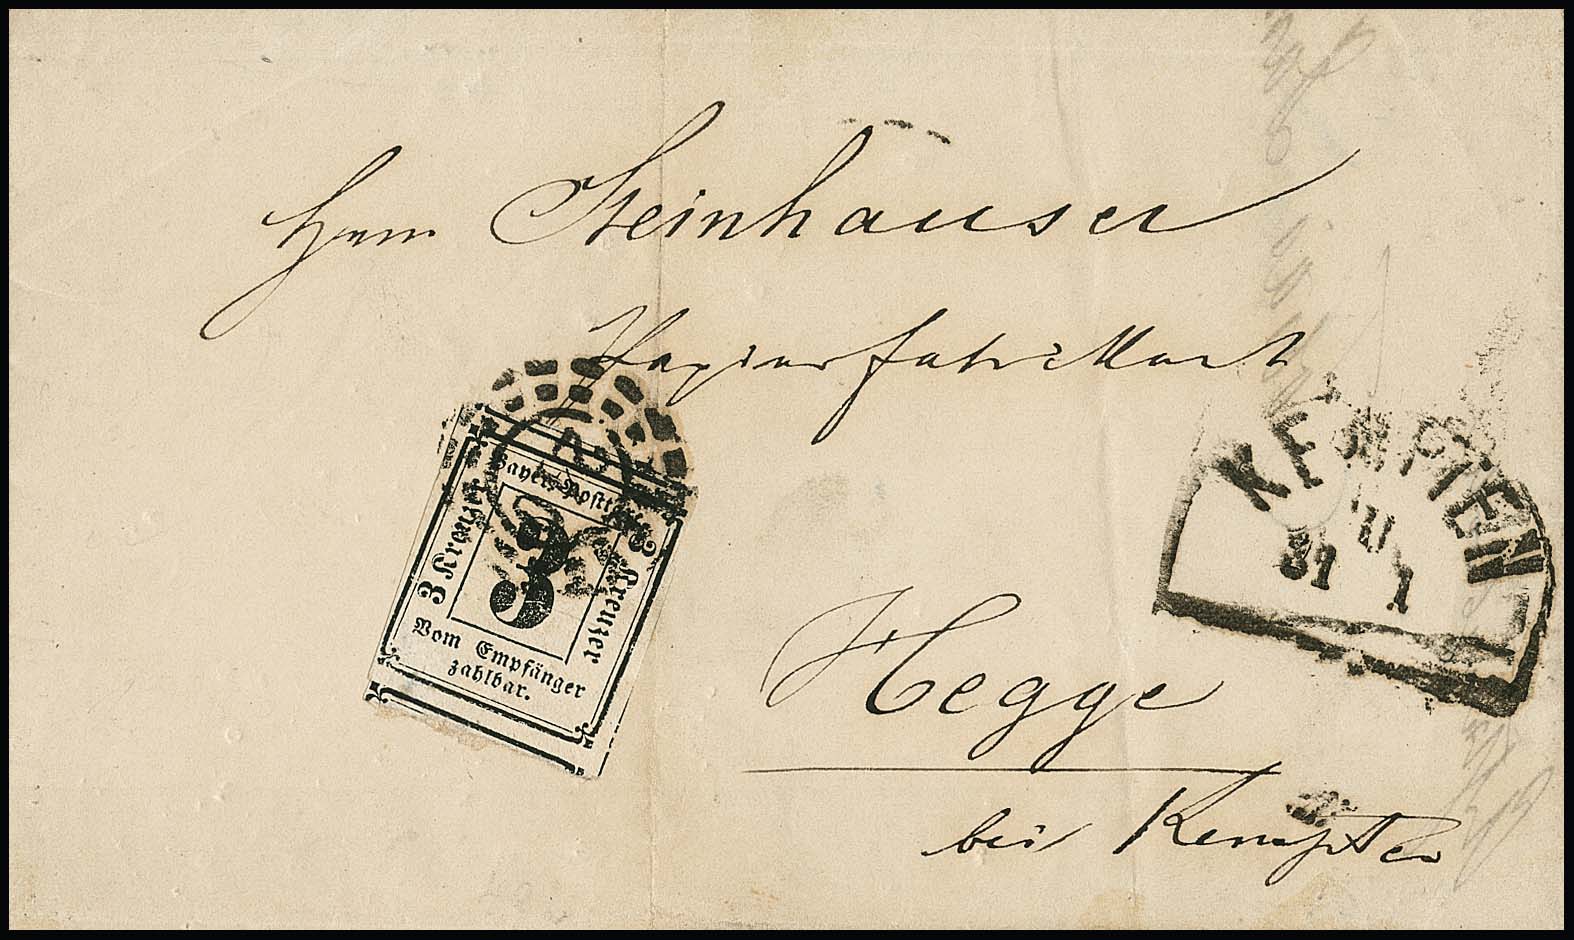 Herrn Steinhauser
Papierfabrikant
Bayer. Posttaxe
3 Kreuzer
3 Kreuzer
3
Vom Empfänger
zahlbar.
KEMPTEN
31 1
Hegge
bei Kempten